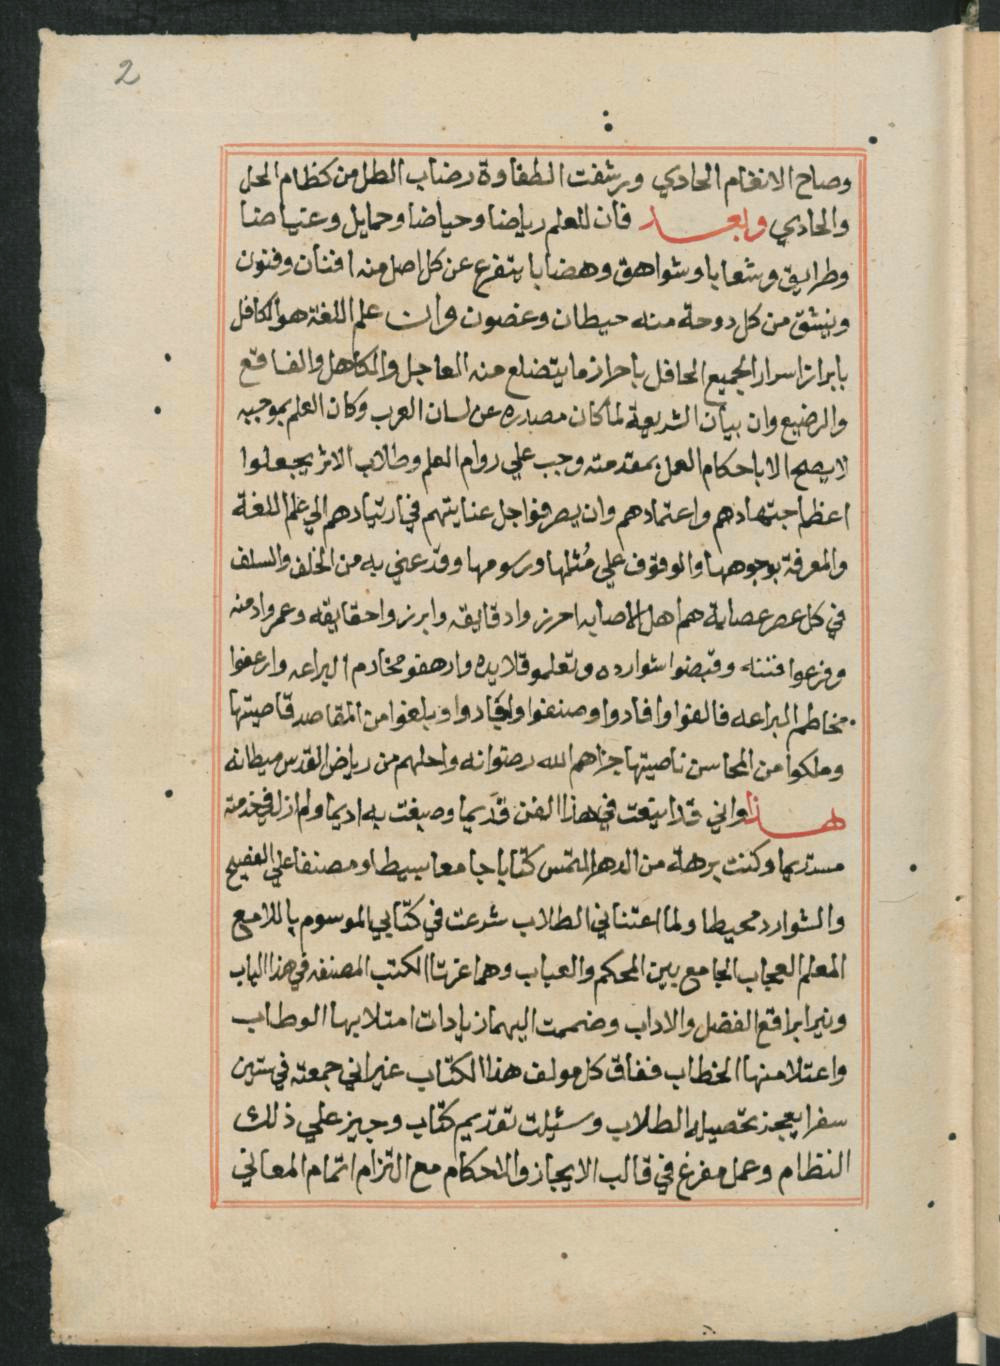 2
وصاح الانغام الحادي ورشفت الطفاوة رضاب الطل من كظام الجل
والحادي وبعد فان للعلم رياضا وحياضا وحمايل وعنياضا
وطرايق وشعابا وشواهق وهضابا يتفرع عن كل اصل منه افنان وفنون
وينشق من كل دوحة منه حيطان وغصون وان علم اللغة هو الكافل
بابراز اسرار الجميع الحافل باحراز ما يتضلع منه العاجل والكاهل والفاقع
والرضيع وان بيان الشريعة لما كان مصدره عن لسان العرب وكان العلم بموجبه
لا يصح الا باحكام العلم بمقدمته وجب علي روام العلم وطلاب الاثر يجعلوا
اعظم اجتهادهم واعتمادهم وان يصرفوا جل عنايتهم في ارتيادهم الي علم اللغة
والمعرفة بوجوهها والوقوف علي مُثلها ورسومها وقد عني به من الخلف والسلف
في كل عصر عصابة هم اهل الاصابه احرزوا دقايقه وابرزوا حقايقه وعمروا دمنه
وفرعوا قننه وقبصنوا شوارده ونظموا قلايده وارهفو مخادم البراعه وارعفوا
مخاطم اليراعه فالفوا وافادوا وصنفوا واجَادوا وبلغوا من المقاصد قاصيتها
وملكوا من المحاسن ناصيتها جزاهم الله رضوانه واحلهم من رياض القدس ميطانه
هذا واني قد نبغت في هذا الفن قَديما وصبغت به اديما ولم ازل في خدمته
مستديما وكنت برهة من الدهر التمس كتابا جامعا بسيطا ومصنفا علي الفصيح
والشوارد محيطا ولما اعتناني الطلاب شرعت في كتابي الموسوم باللامع
المعلم العجاب الجامع بين المحكم والعباب وهما غرتا الكتب المصنفه في هذا الباب
ونيرا براقع الفضل والاداب وضممت اليهما زيادات امتلا بها الوطاب
واعتلا منها الخطاب ففاق كل مولف هذا الكتاب غير اني جمعته في ستين
سفرا يعجز تحصيله الطلاب وسئيلت تقديم كتاب وجيز علي ذلك
النظام وعمل مفرغ في قالب الايجاز والاحكام مع التزام اتمام المعاني